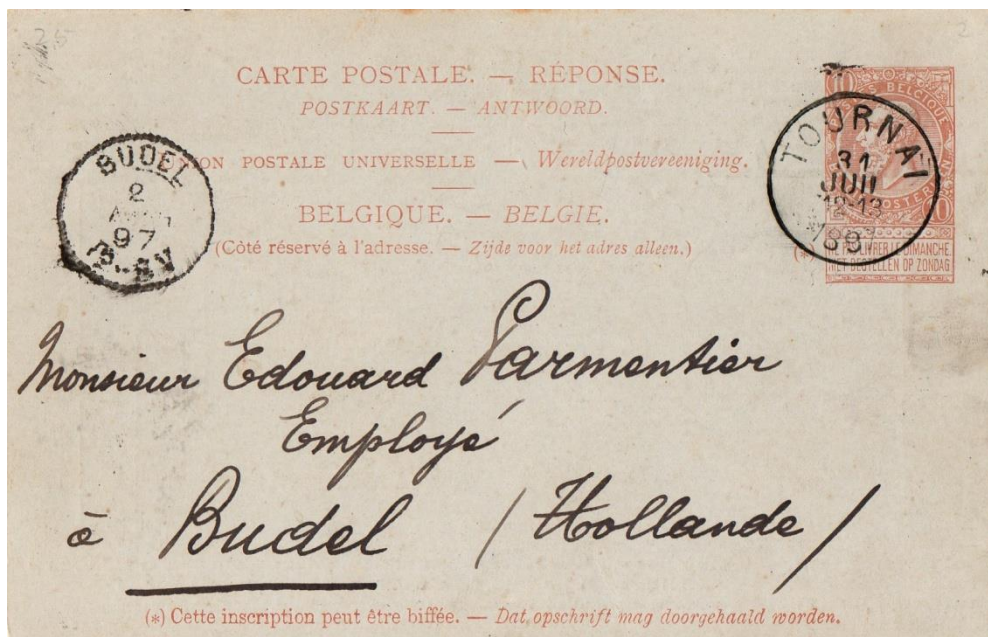 CARTE POSTALE. — RÉPONSE.
POSTKAART. — ANTWOORD.
POSTALE UNIVERSELLE — Wereldpostvereeniging.
BELGIQUE. — BELGIE.
(Côté réservé à l'adresse. — Zijde voor het adres alleen.)
BUDEL
2
97
TOURNAI
31
JUIL
12-13
BELGIQUE
10
DIMANCHE.
NIET BESTELLEN OP ZONDAG
Monsieur Edouard Parmentier
Employé
à Budel (Hollande)
(*) Cette inscription peut être biffée. — Dat opschrift mag doorgehaald worden.